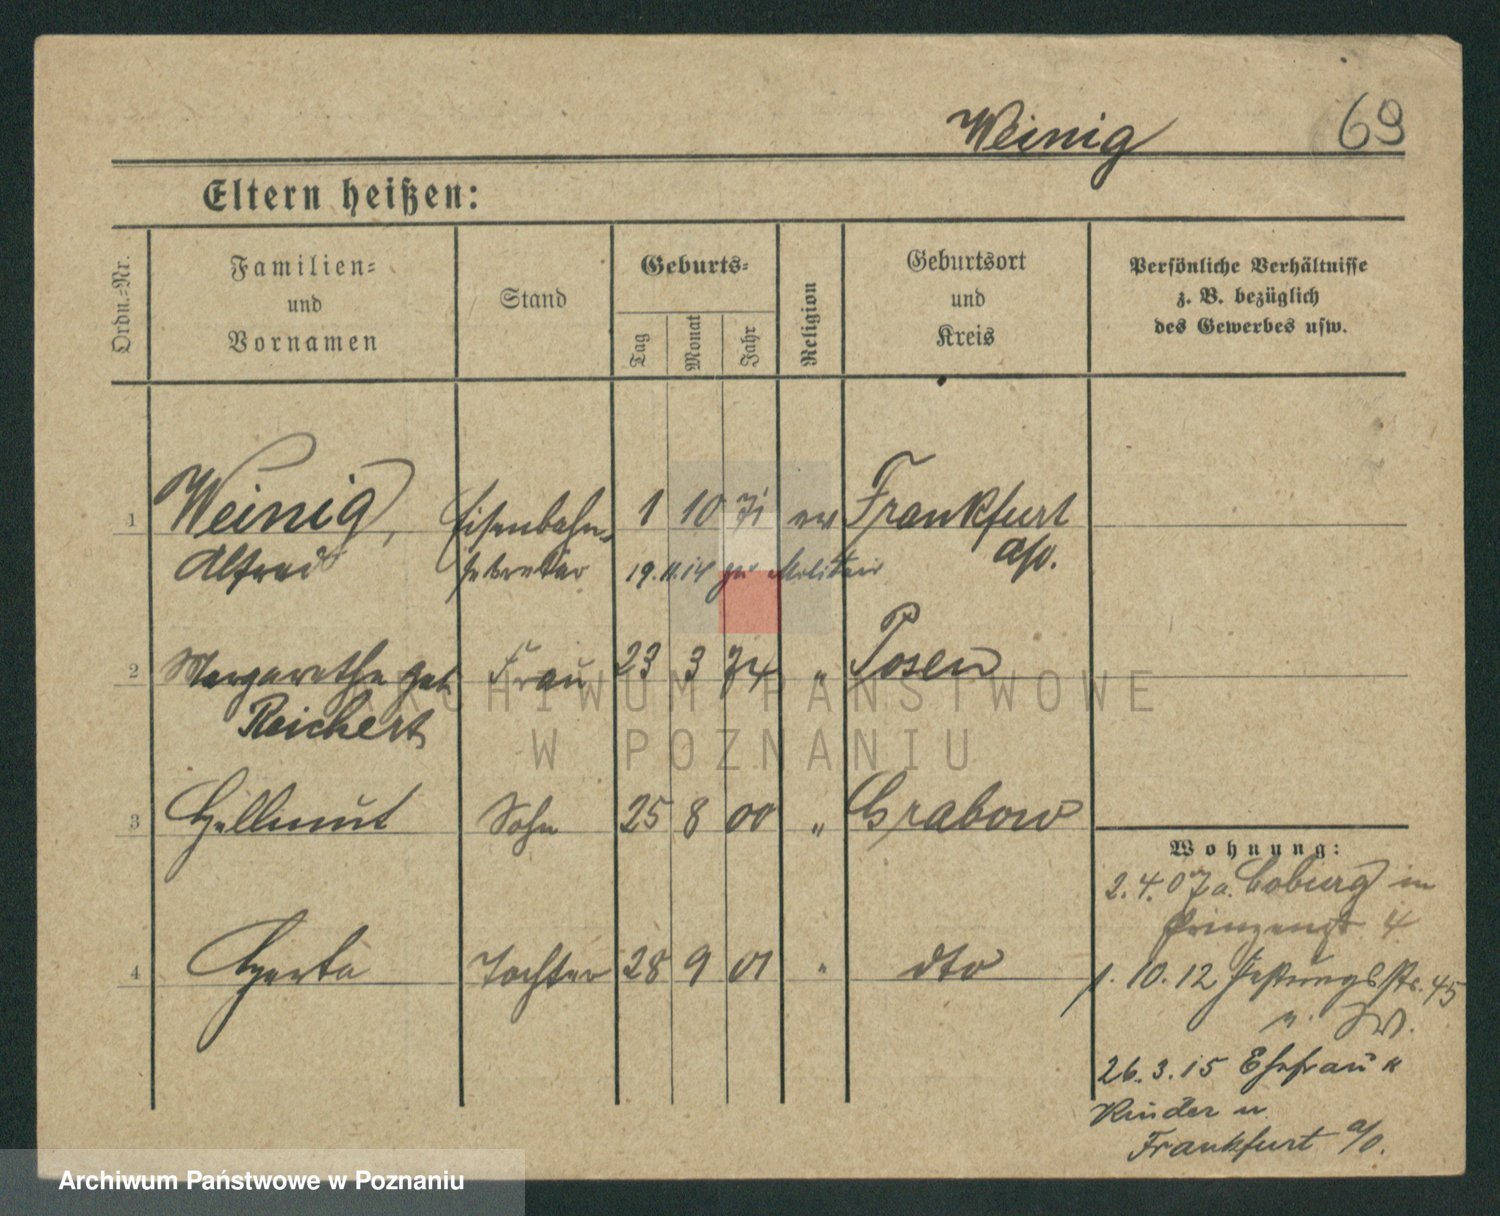 Weinig 69
Eltern heißen:
Ordn.-Nr.
Familien-
und
Vornamen
Stand
Geburts-
Tag
Monat
Jahr
Religion
Geburtsort
und
Kreis
Persönliche Verhältnisse
z. B. bezüglich
des Gewerbes usw.
1 Weinig, Eisenbahn- 1 10 71 ev Frankfurt
Alfred sekretär 19.11.14 zur Militair a/o.
2 Margarethe geb. Frau 23 3 74 " Posen
Reichert
3 Hellmut Sohn 25 8 00 " Grabow
4 Herta Tochter 28 9 01 " dto
Wohnung:
2.4.07 a. Coburg in
4
1.10.12 Festungsstr. 45
26.3.15 Ehefrau u
Kinder n.
Frankfurt a/o.
ARCHIWUM PAŃSTWOWE
W POZNANIU
Archiwum Państwowe w Poznaniu